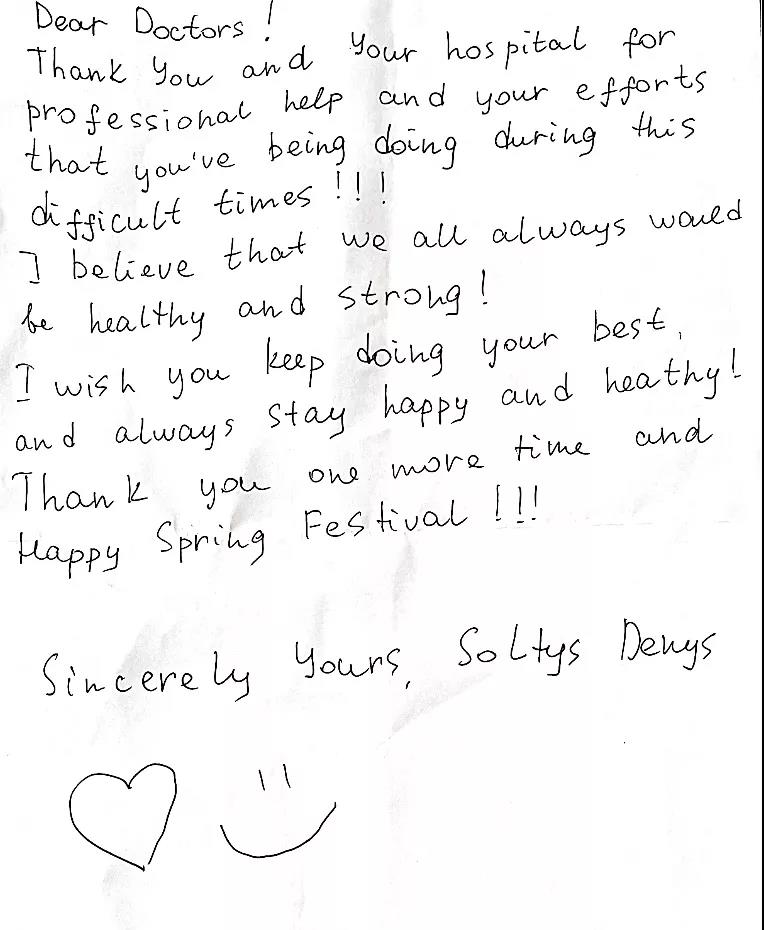 Dear Doctors!
Thank you and your hospital for
professional help and your efforts
that you've being doing during this
difficult times!!!
I believe that we all always would
be healthy and strong!
I wish you keep doing your best,
and always stay happy and heathy!
Thank you one more time and
Happy Spring Festival!!!
Sincerely Yours, Soltys Denys